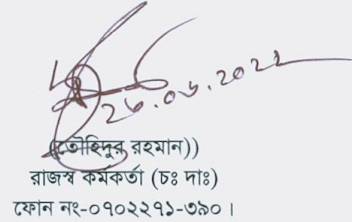 (তৌহিদুর রহমান))
রাজস্ব কর্মকর্তা (চঃ দাঃ)
ফোন নং-০৭০২২৭১-৩৯০।